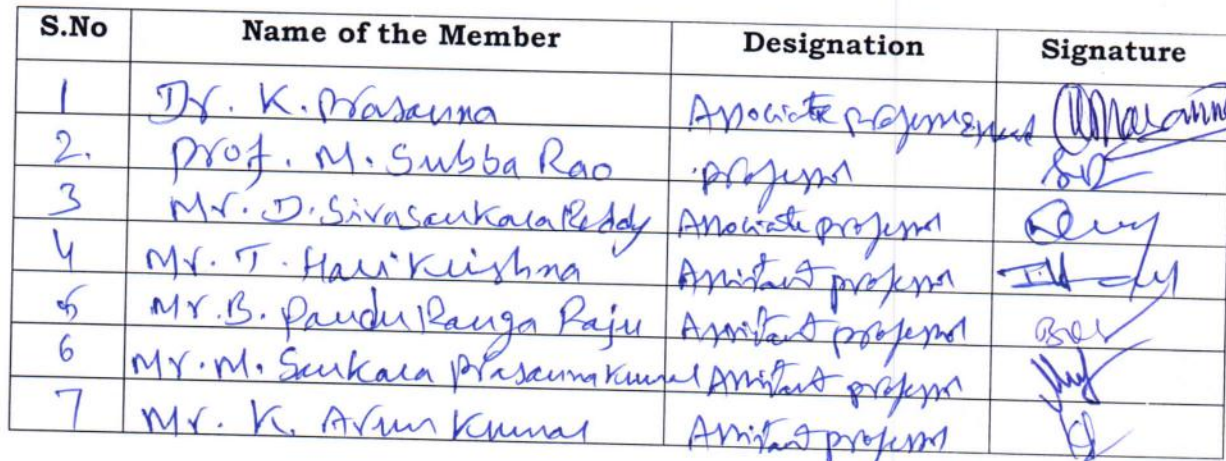 S.No Name of the Member Designation Signature
1 Dr. K. Prasanna Associate professor
2. Prof. M. Subba Rao professor
3 Mr. D. Siva Sankara Reddy Associate professor
4 Mr. T. Hari Krishna Assistant professor
5 Mr. B. Pandu Ranga Raju Assistant professor
6 Mr. M. Sankara Prasanna Kumar Assistant professor
7 Mr. K. Arun Kumar Assistant professor